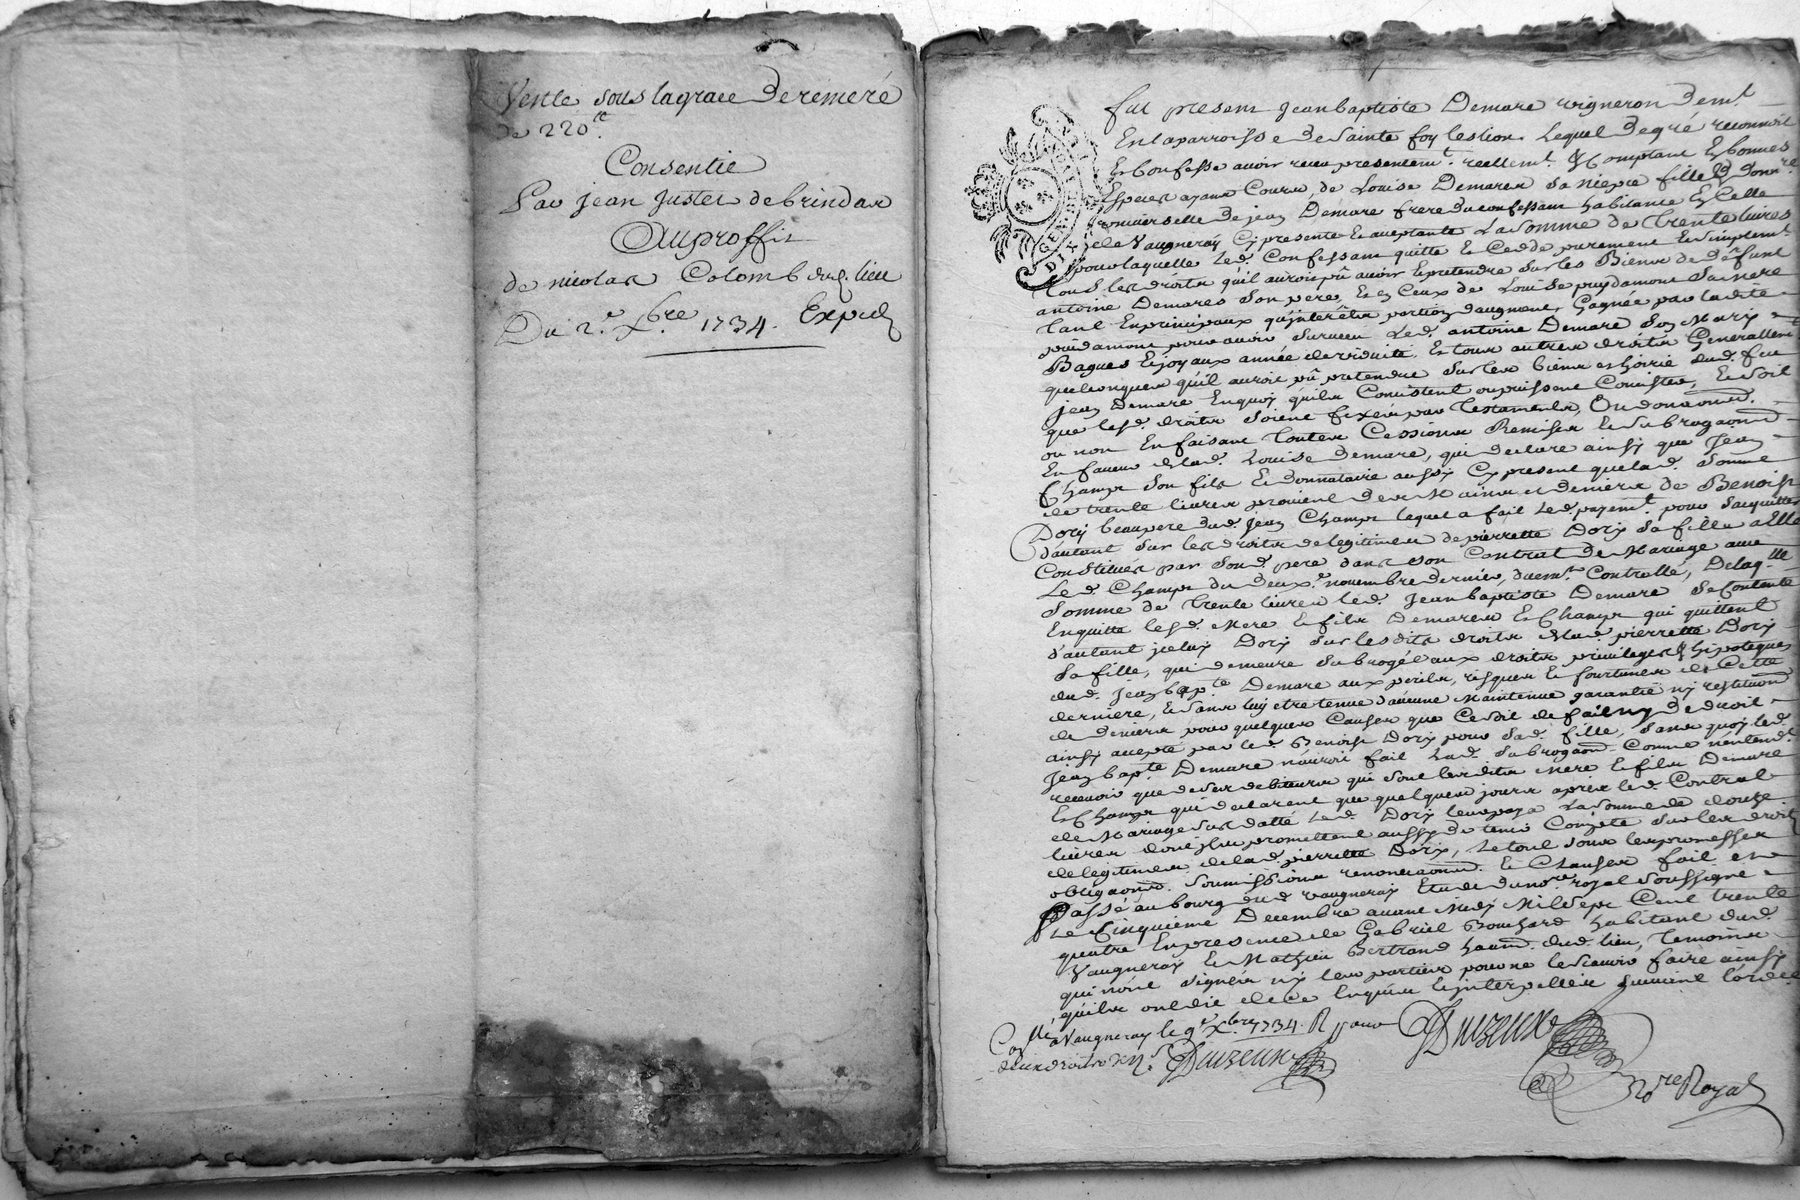 Vente sous la grace de rémeré
de 220tt
Consentie
Par jean Juster de brindas
Au proffit
de nicolas Colomb dud. lieu
Du 2e Xbre 1734. Exped
fut present jean baptiste Demare vigneron demt
En la parroisse de Sainte foy Lestion. Lequel de gré reconnoit
Et Confesse avoir receu presentemt. reellemt. & Comptant En bonnes
Especes ayant Cours, de Louise Demares sa niepce fille & donnre
universelle de jean Demare frere du confessant habitante En Celle
de Vaugneray Cy presente & aceptante La somme de trente livres
pour laquelle Led. Confessant quitte Et Cedde purement Et simplemt.
tous les droits qu'il auroit pû avoir & pretendre sur les Biens de deffunt
antoine Demares son pere, Et En Ceux de Louise puydamont sa mere
tant En principaux qu'interets portion d'augment, Gagnée par la dite
puidamont pour avoir survecu Led. antoine Demare son Mary
Bagues & joyaux année de viduité, Et tous autres droits Generallemt
quelconques qu'il auroit pû pretendre sur les biens et hoirie dud. feu
jean Demare En quoy qu'ils Consistent ou puissent Consister, Et soit
que lesd. droits soient fixés par Testaments, Ou donnaonns.
ou non En faisant toutes Cessions Remises Et subrogaons
En faveur de lad. Louise demare, qui declare ainsy que Jean
Champs son fils Et donnataire aussy Cy present que lad. somme
de trente livres provient des Mains et deniers de Benoist
Dory beaupere dud. jean Champs lequel a fait led. payemt. pour s'acquitter
d'autant sur les droits de legitimes de pierrette Dory sa fille a Elle
Constitués par sond. pere dans son Contrat de Mariage avec
Led. Champs du deuxe. novembre dernier, duemt. Controllé, De laqlle
somme de trente livres led. Jean baptiste Demare se Contente
En quitte lesd. Mere & fils Demares Et Champs qui quittent
d'autant iceluy Dory sur lesdits droits de lad. pierrette Dory
sa fille, qui demeure subrogée aux droits privileges & hipoteques
dud. jean bapte. Demare aux perils, risques Et fortunes de Cette
derniere, Et sans luy etre tenue d'aucune Maintenue garantie ny restitution
de deniers pour quelques Causes que Ce soit de fait ny de droit
ainsy accepté par led. Benoist Dory pour sad. fille, sans quoy led.
Jean bapte. Demare n'auroit fait Lad. subrogaon. Comme n'entendt
recevoir que de ses debiteurs qui sont lesdits Mere & fils Demare
Et Champs qui declarent que quelques jours apres led. Contrat
de Mariage sus datté Led. Dory leur paya La somme de douze
livres dont ils promettent aussy de tenir Compte sur les droits
de legitimes de lad. pierrette Dory, Le tout sous les promesses
obligaons. soumissions renonciaons. Et Clauses fait et
Passé au bourg dud. Vaugneray Etude du nore. royal soussigné
Le Cinquieme Decembre avant Midy Mil sept Cent trente
quatre En presence de Gabriel Bouchard habitant dud.
Vaugneray & Mathieu Bertrand haant. dud. lieu, temoins
qui n'ont signés ny les parties pour ne le sçavoir faire ainsy
qu'ils ont dit de ce Enquis & interpellés suivant l'ordce
Collé a Vaugneray le 9e Xbre 1734. R pour
deux droits
Duzeux
Duzeux
Nore Royal